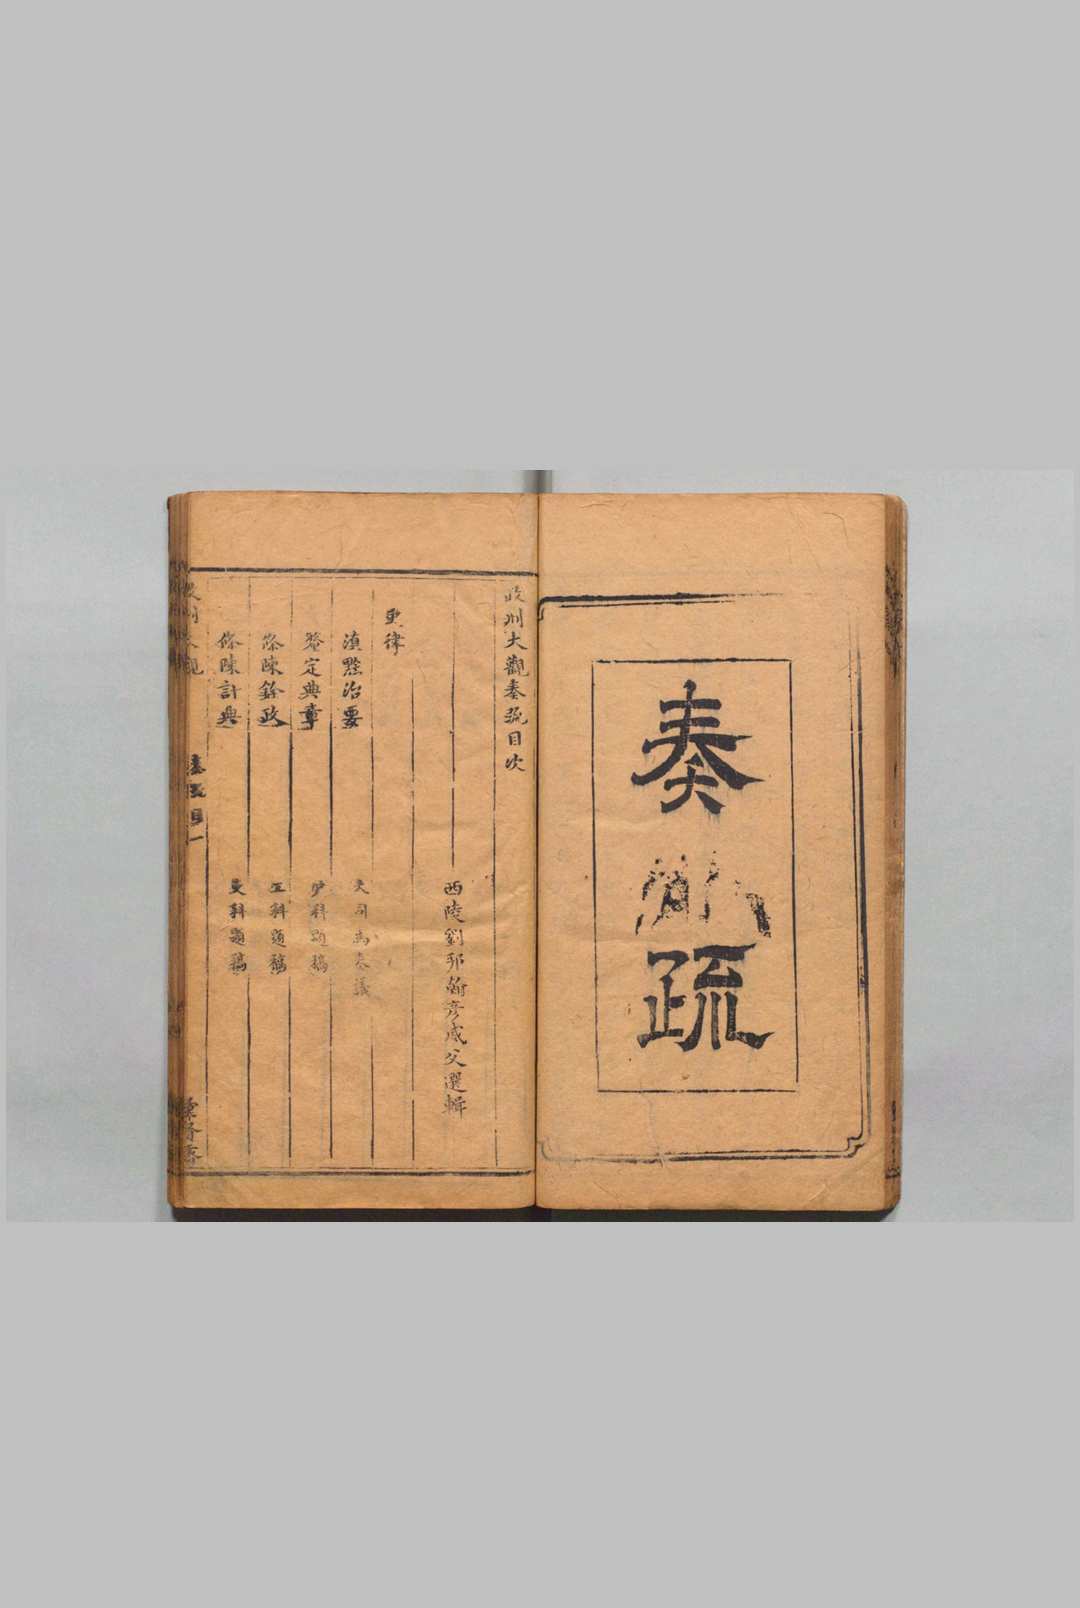 奏
疏
政刑大觀奏疏目次
西陵劉邦翰彥咸父選輯
吏律
滇黔治要
大司馬奏議
鰲定典章
戶科題稿
條陳銓政
工科題稿
條陳計典
吏科題稿